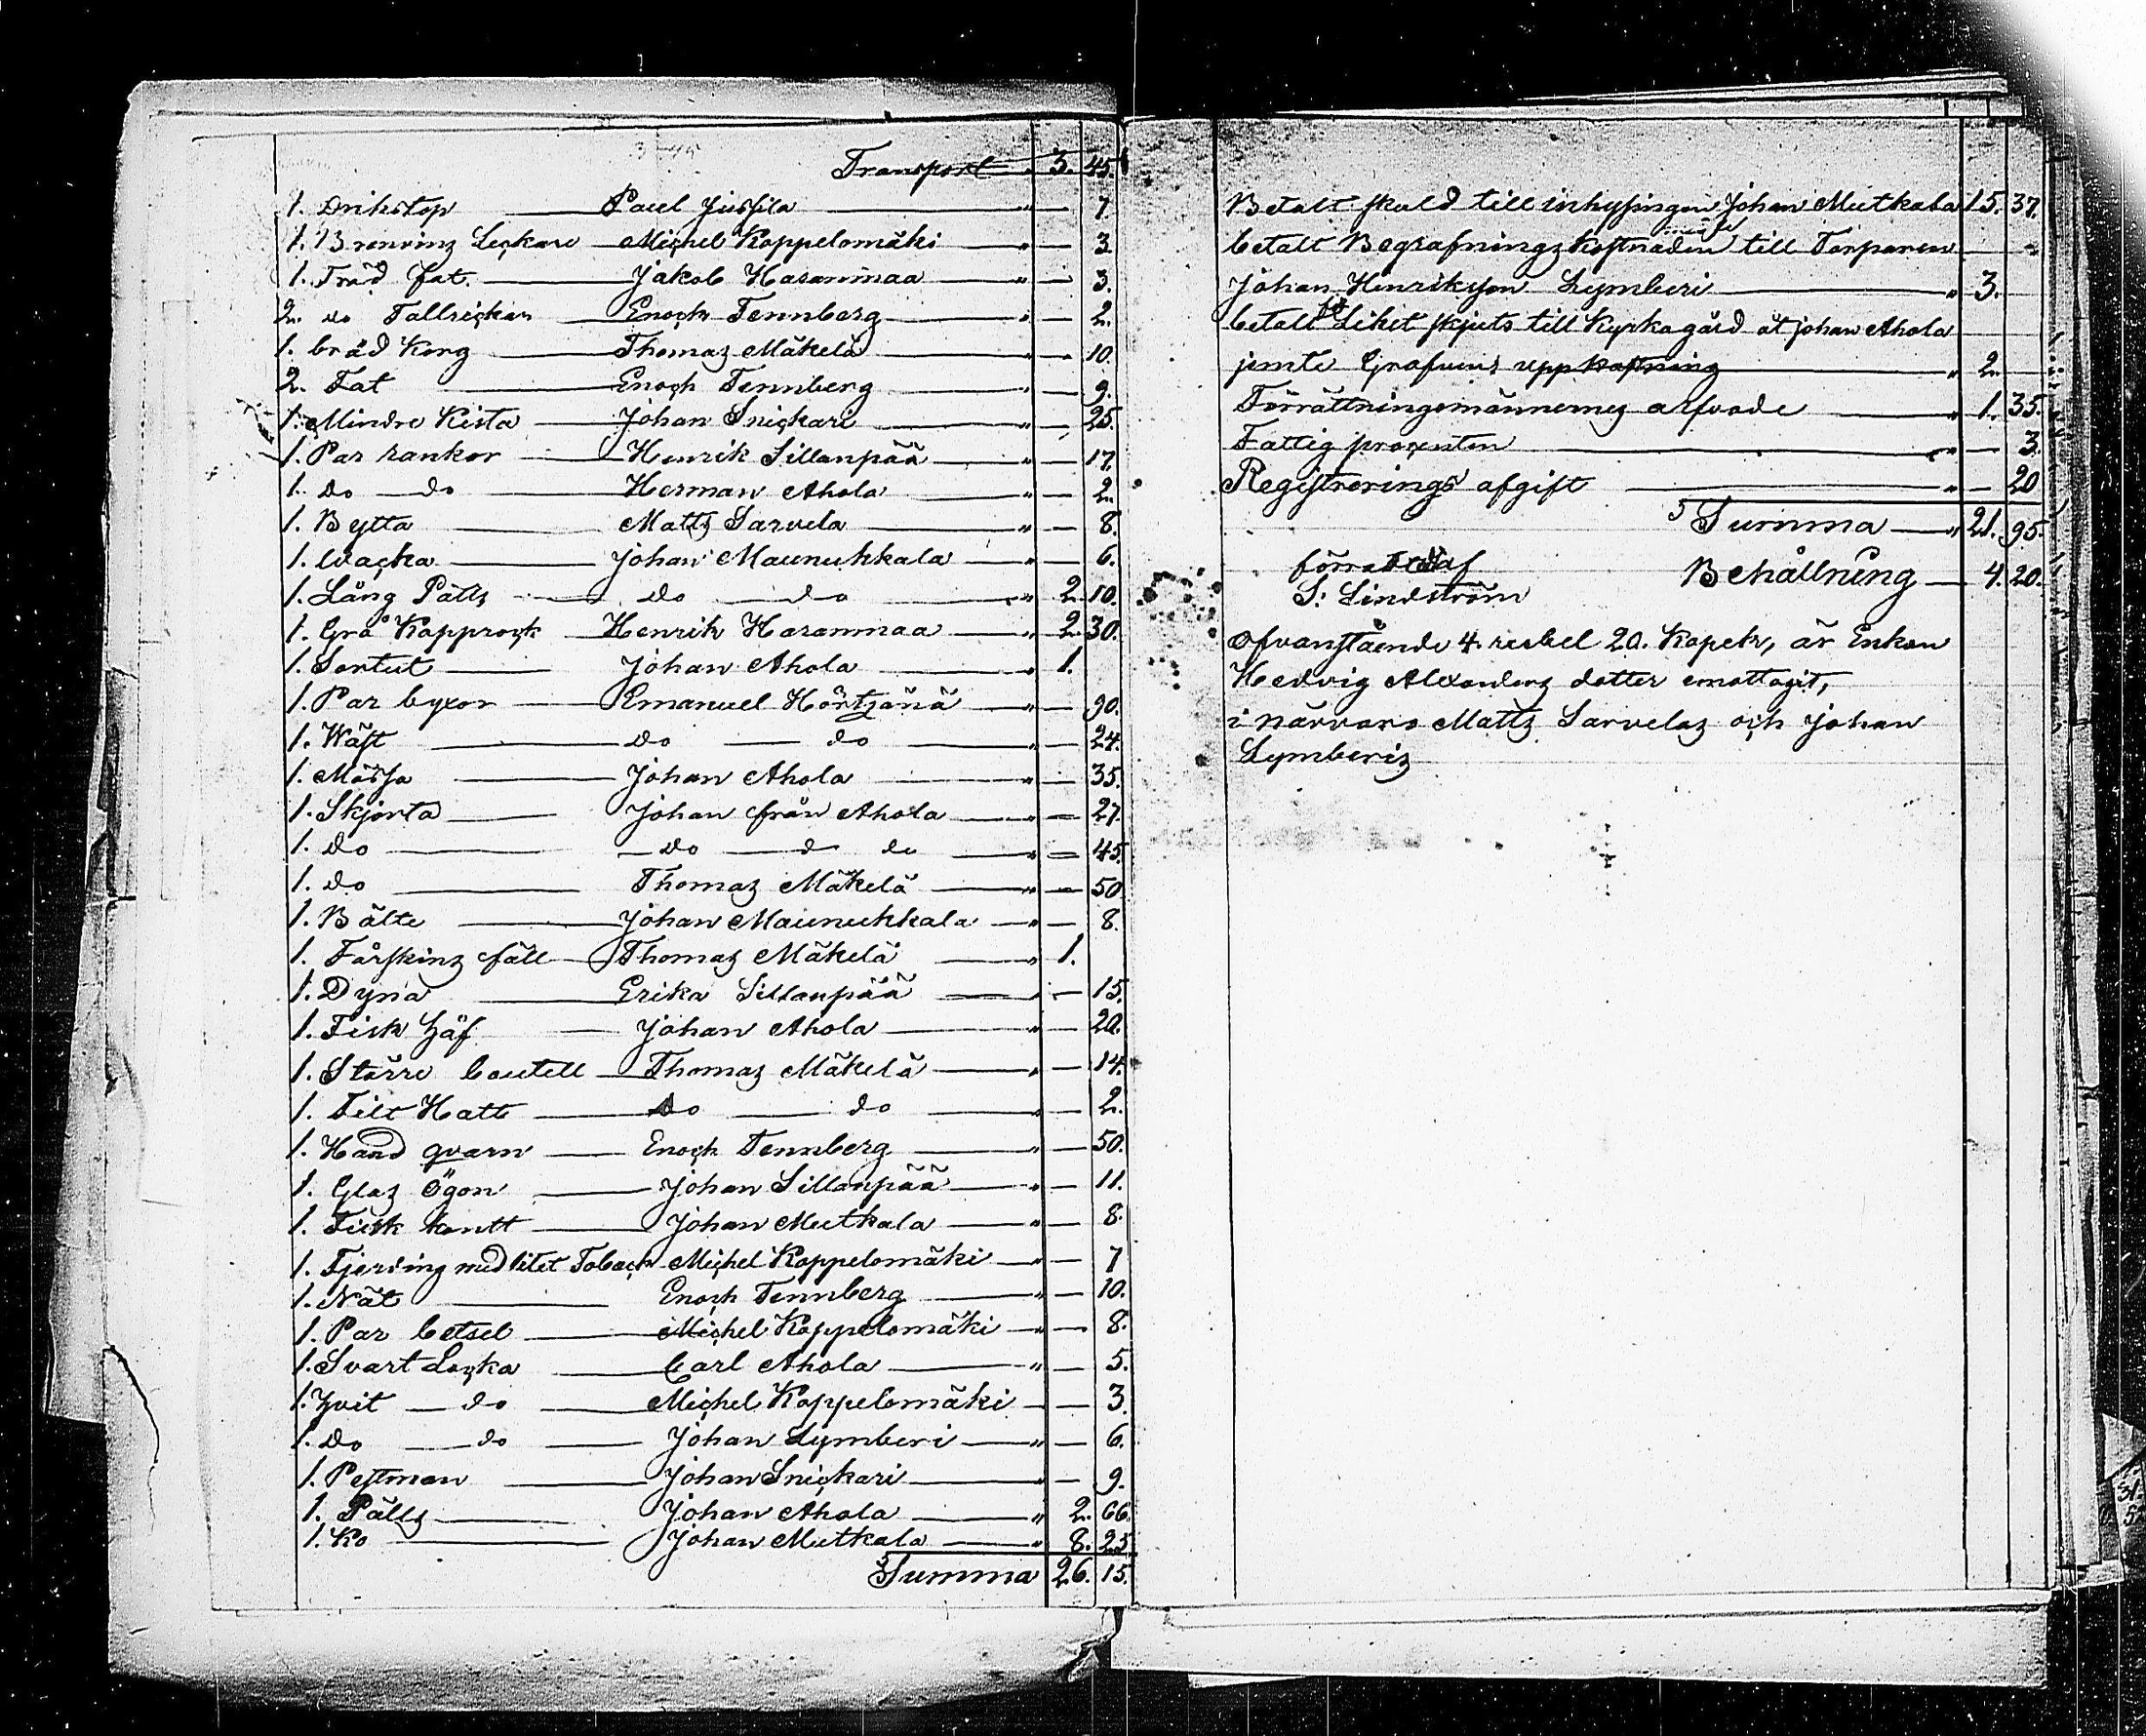 Transport " 3. 45.
1. Drikstop — Paul Jussila — " — 7.
1. Brenvinz Leçkare — Michel Koppelomäki — " — 3
1. Träd fat. — Jakob Haranmaa — " — 3.
2. do Tallrickar — Enoch Tennberg — " — 2.
1. bräd Korg — Thomaz Mäkelä — " — 10.
2. Fat — Enoch Tennberg — " — 9.
1. Mindre Kista — Johan Snickari — " — 25.
1. Par rankor — Henrik Sillanpää — " — 17.
1. do — do — Herman Ahola — " — 2.
1. Bytta — Mattz Sarvela — " — 8.
1. Wacka — Johan Maunukkala — " — 6.
1. Lång Pältz — do — do — " 2. 10.
1. Grå Kapprock — Henrik Haranmaa — " 2. 30.
1. Sortut — Johan Ahola — " 1.
1. Par byxor — Emanuel Hörtjänä — " — 90.
1. Wäst — do — do — " — 24.
1. Mössa — Johan Ahola — " — 35.
1. Skjorta — Johan från Ahola — " — 27.
1. do — do — do do — " — 45.
1. do — Thomaz Mäkelä — " — 50
1. Bälte — Johan Maunukkala — " — 8.
1. Fårskinz fäll — Thomaz Mäkelä — " 1.
1. Dyna — Erika Sillanpää — " — 15.
1. Fisk håf — Johan Ahola — " — 20.
1. Större boutell — Thomaz Mäkelä — " — 14.
1. Filt Hatt — do — do — " — 2.
1. Hand qvarn — Enoch Tennberg — " — 50.
1. Glaz Ögon — Johan Sillanpää — " — 11.
1. Fisk kontt — Johan Mutkala — " — 8.
1. Fjerding med litet Toback Michel Koppelomäki — " — 7
1. Nät — Enoch Tennberg — " — 10.
1. Par betsel — Michel Koppelomäki — " — 8.
1. Svart Locka — Carl Ahola — " — 5.
1. hvit — do — Michel Koppelomäki — — 3.
1. do — do — Johan Lymberi — " — 6.
1. Pestman — Johan Snickari — " — 9.
1. Pältz — Johan Ahola — " 2. 66.
1. Ko — Johan Mutkala — " 8. 25.
Summa 26. 15.
Betalt skuld till inhysingen Johan Mutkala 15. 37.
betalt Begrafningz kostnaden till Torparen
Johan Henriksson Lymberi — " 3.
betalt Liket skjuts till Kyrkogård åt Johan Ahola
jemte Grafvens uppkastning — " 2.
Förrättningsmännernes arfvode — " 1. 35.
Fattig procenten — " — 3.
Registrerings afgift — " — 20
Summa — " 21. 95.
förrättat af
S: Lindström
Behållning — 4. 20.
Ofvanstående 4. rubel 20. Kopek, är Enkan
Hedvig Alexanderz dotter emottagit,
i närvaro Mattz Sarvelaz och Johan
Lymberiz